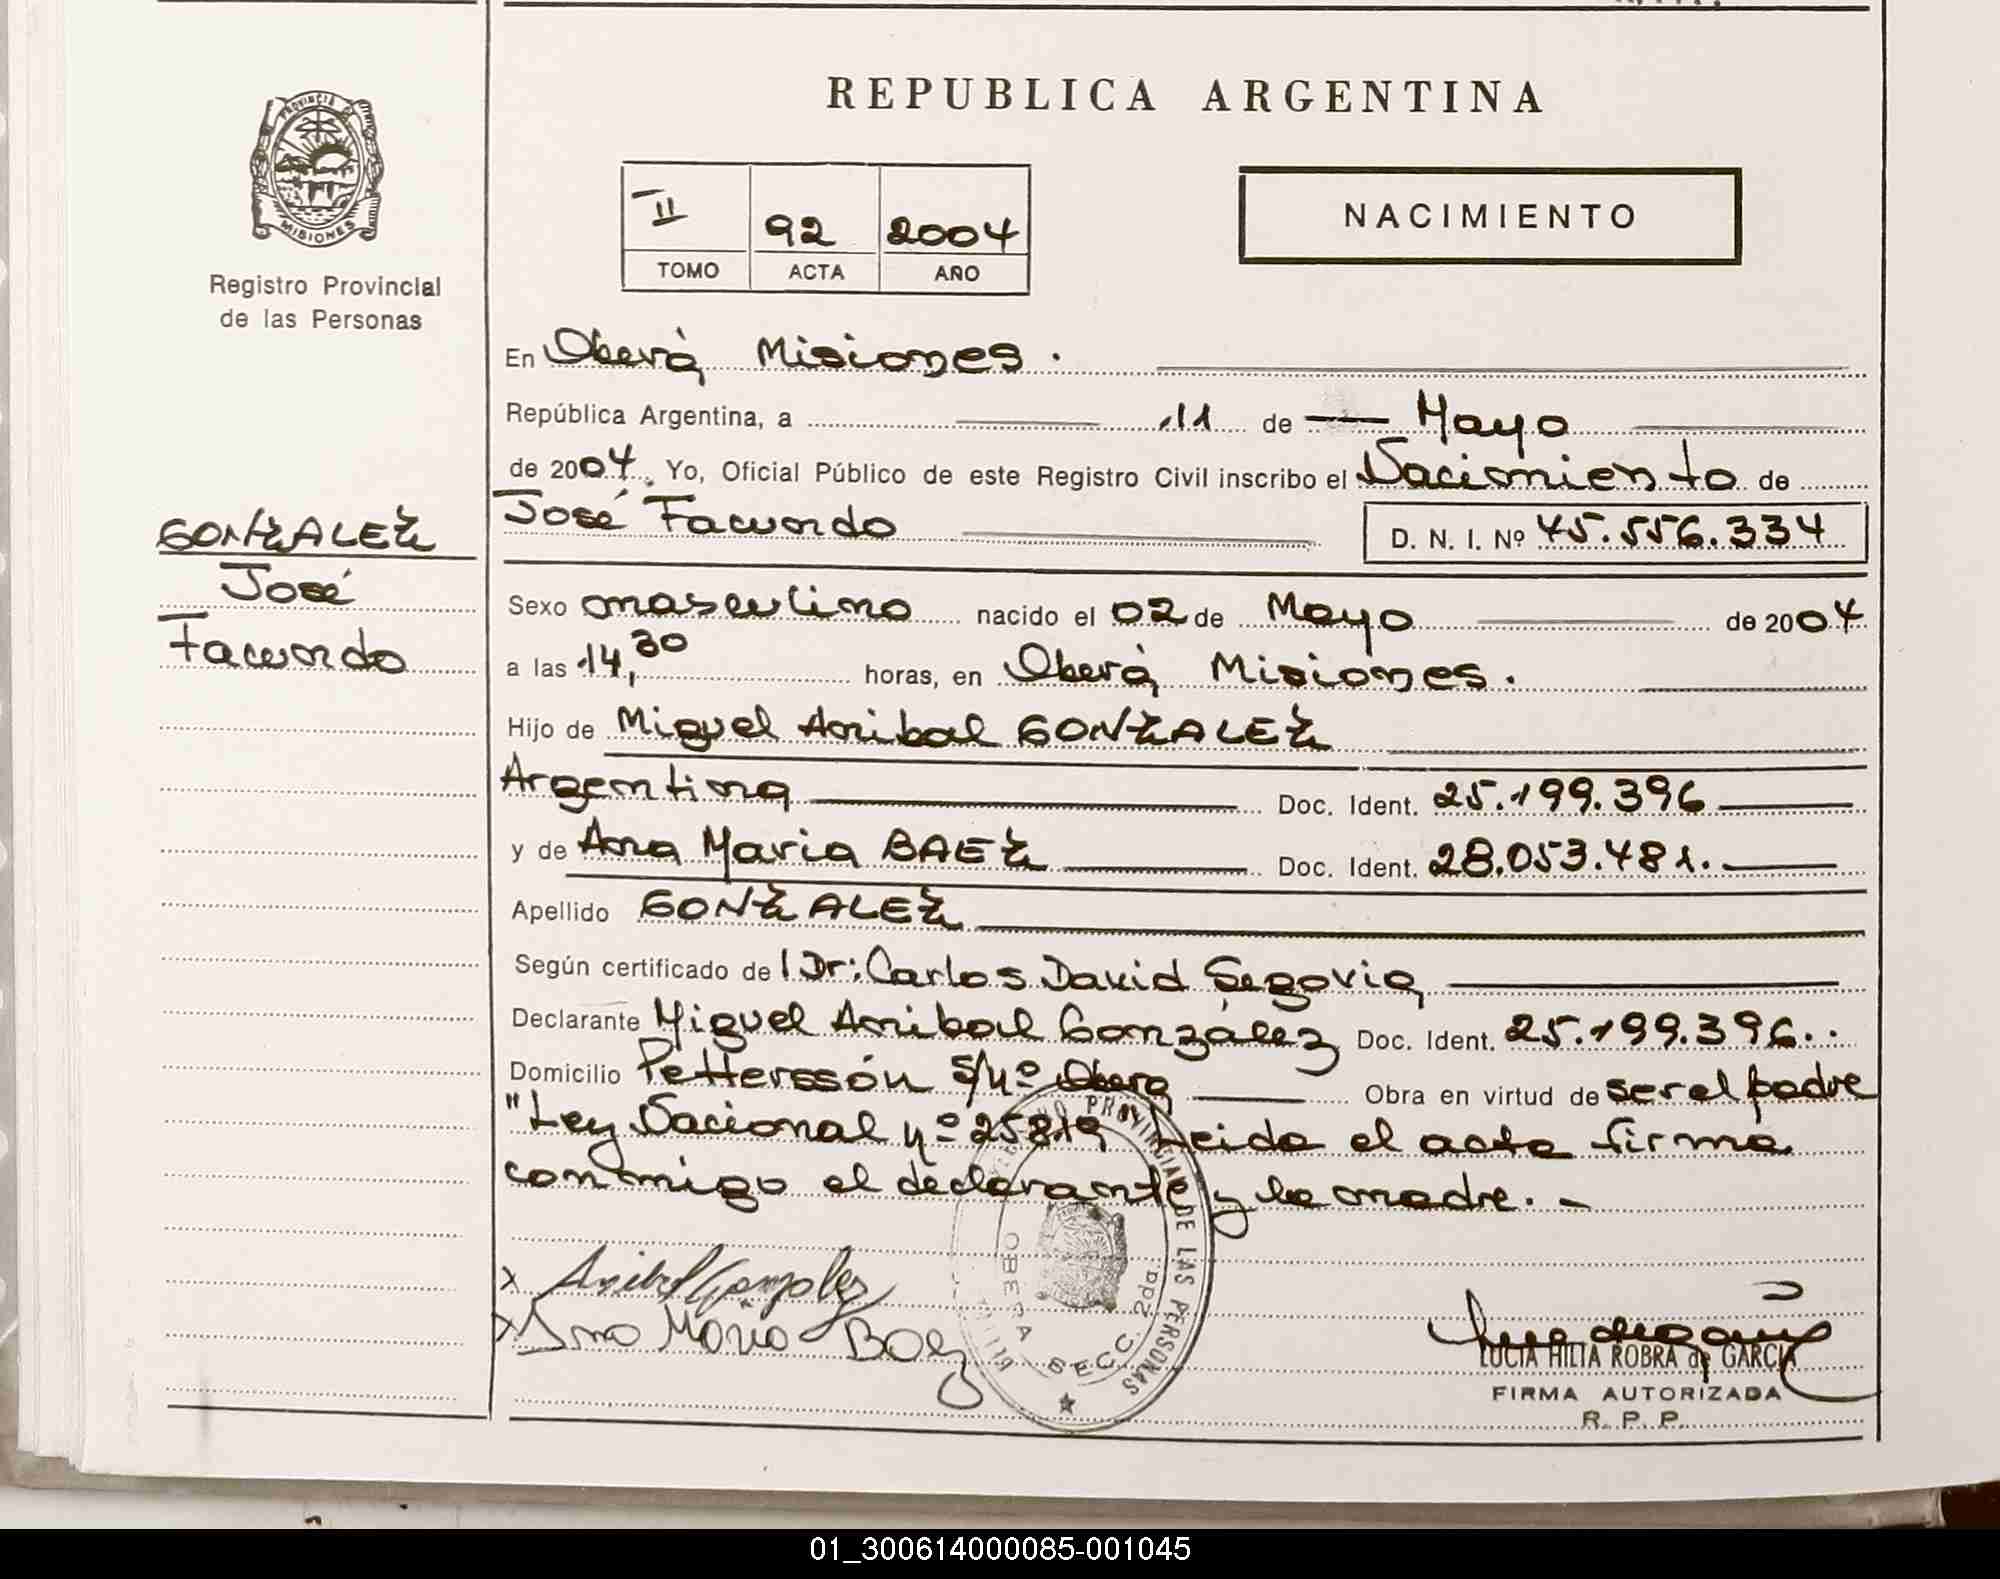 REPUBLICA ARGENTINA
PROVINCIA
MISIONES
Registro Provincial
de las Personas
II 92 2004
TOMO ACTA AÑO
NACIMIENTO
En Oberá Misiones.
República Argentina, a 11 de Mayo
de 2004. Yo, Oficial Público de este Registro Civil inscribo el Nacimiento de
José Facundo D. N. I. Nº 45.556.334
GONZALEZ
José
Facundo
Sexo masculino nacido el 02 de Mayo de 2004
a las 14,30 horas, en Oberá Misiones.
Hijo de Miguel Anibal GONZALEZ
Argentina Doc. Ident. 25.199.396
y de Ana Maria BAEZ Doc. Ident. 28.053.481.
Apellido GONZALEZ
Según certificado de l Dr: Carlos David Segovia
Declarante Miguel Anibal González Doc. Ident. 25.199.396.
Domicilio Petterssón S/Nº Obera Obra en virtud de ser el padre
"Ley Nacional nº 25819 Leida el acta firma
conmigo el declarante y la madre. -
PROVINCIAL DE LAS PERSONAS
OBERA SECC. 2da.
x Anibal Gonzalez
x Ana Maria Baez
LUCIA HILIA ROBRA de GARCIA
FIRMA AUTORIZADA
R. P. P.
01_300614000085-001045